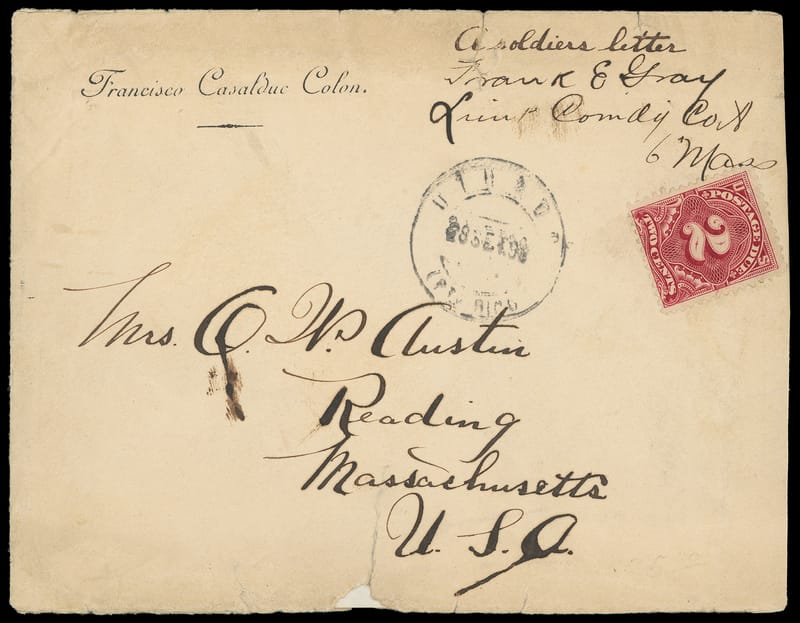 A soldiers letter
Frank E Gray
Francisco Casalduc Colon.
Comdg Co A
6 Mass
UTUADO
28 SET 98
RICO
POSTAGE DUE
2
TWO CENTS
U
S
Mrs. O. W. Austin
Reading
Massachusetts
U. S. A.